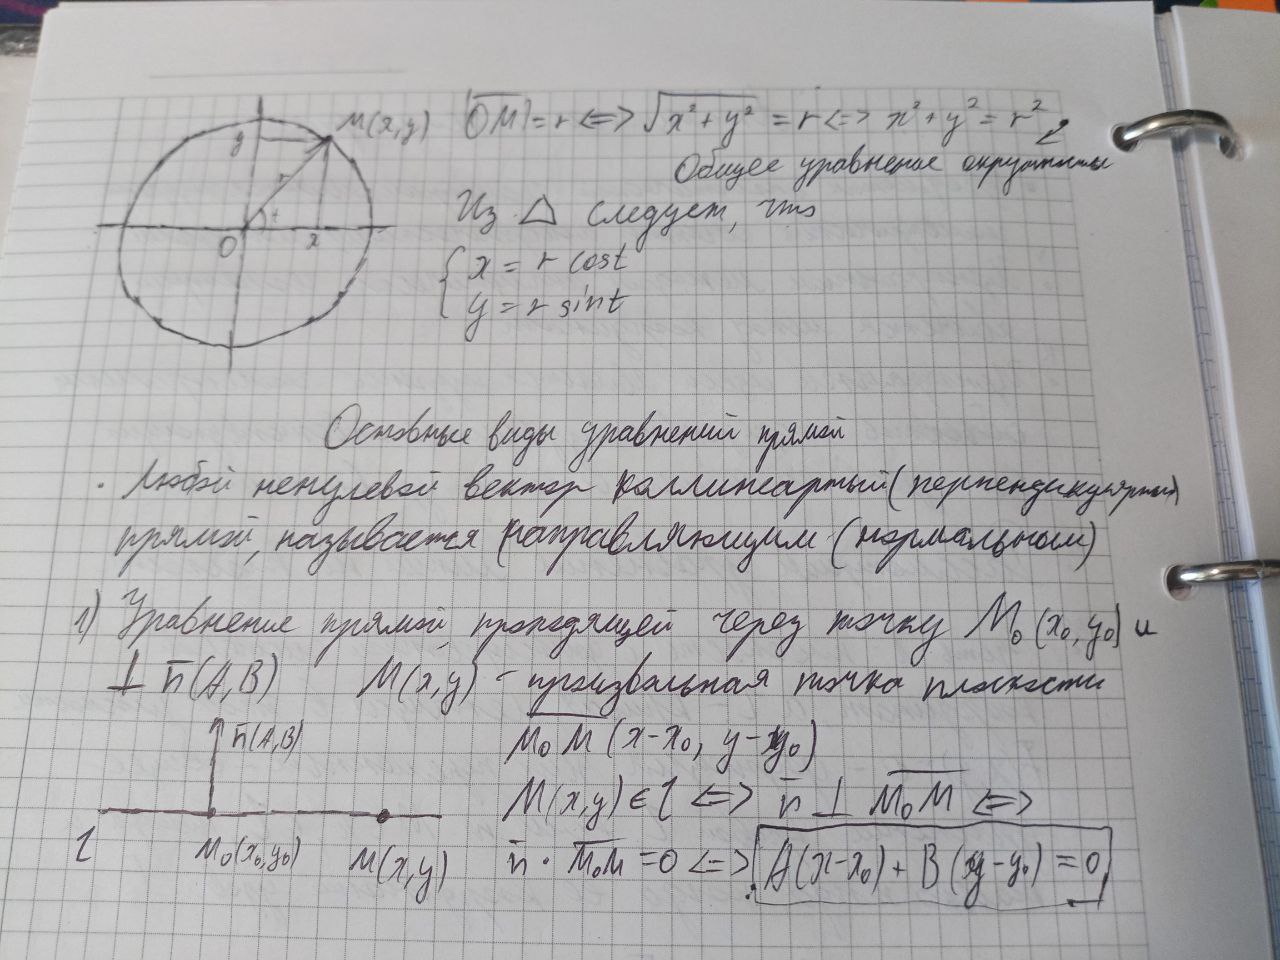 M(x,y) |OM| = r <=> √x²+y² = r <=> x²+y² = r²
y
Общее уравнение окружности
r
t
O
x
Из △ следует, что
{ x = r cost
y = r sint
Основные виды уравнений прямой
· Любой ненулевой вектор коллинеарный (перпендикулярный)
прямой, называется направляющим (нормальным)
1) Уравнение прямой, проходящей через точку M₀(x₀,y₀) и
⊥ n̅(A,B) M(x,y) - произвольная точка плоскости
n̅(A,B)
M₀M (x-x₀, y-y₀)
M(x,y) ∈ l <=> n̅ ⊥ M₀M <=>
l M₀(x₀,y₀) M(x,y)
n̅ · M₀M = 0 <=> A(x-x₀) + B(y-y₀) = 0